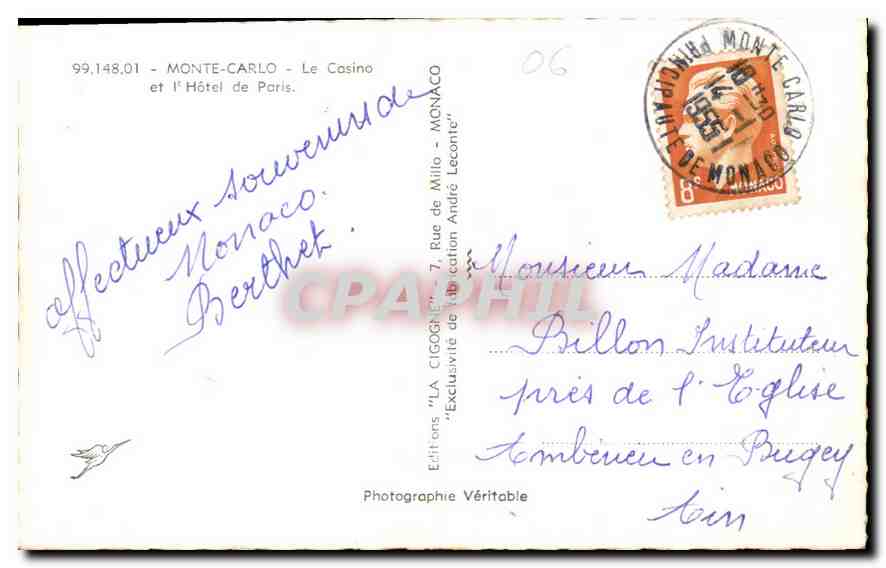 99.148.01 - MONTE-CARLO - Le Casino
et l'Hôtel de Paris.
06
affectueux souvenirs de
Monaco.
Berthet.
Editions "LA CIGOGNE" - 7, Rue de Millo - MONACO
"Exclusivité de fabrication André Leconte"
MONTE CARLO
PRINCIPAUTE DE MONACO
18 H30
14
1955
8c
MONACO
CPAPHIL
Monsieur Madame
Billon Instituteur
près de l'Eglise
Ambérieu en Bugey
Ain
Photographie Véritable